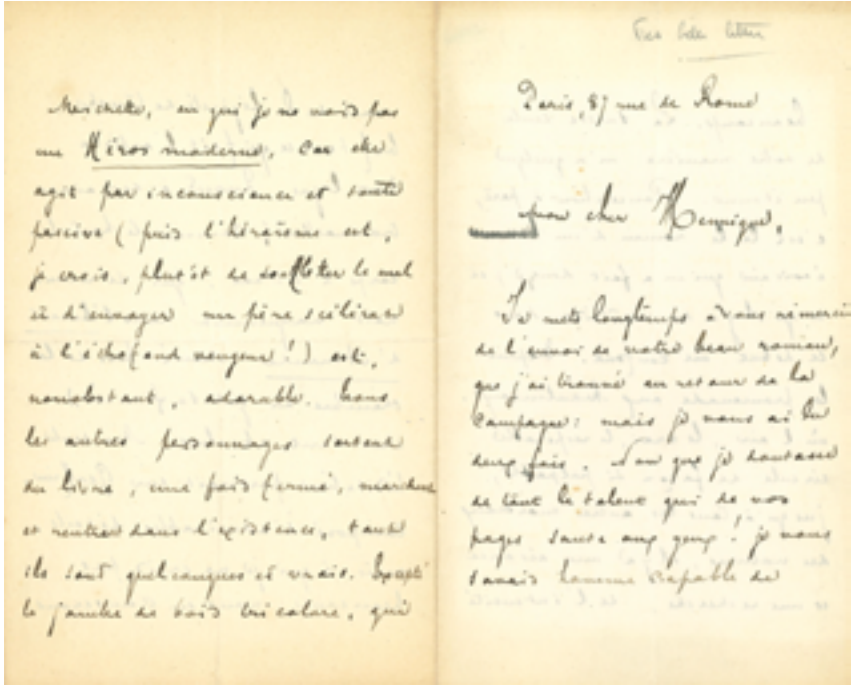 en qui je ne vois pas
un Héros moderne, car elle
agit par inconscience et bonté
passive (puis l'héroïsme est,
je crois, plutôt de souffleter le mal
et d'envoyer un père scélérat
à l'échafaud vengeur!) est,
nonobstant, adorable. Tous
les autres personnages sortent
du livre, une fois fermé, marchent
et rentrent dans l'existence, tant
ils sont quelconques et vrais. Excepté
la jambe de bois tricolore, qui
Très belle lettre
Paris, 87 rue de Rome
Mon cher Hennique,
Je mets longtemps à vous remercier
de l'envoi de votre beau roman,
que j'ai trouvé au retour de la
campagne: mais je vous ai lu
deux fois. Non que je doutasse
de tout le talent qui de vos
pages saute aux yeux! je vous
savais homme capable de